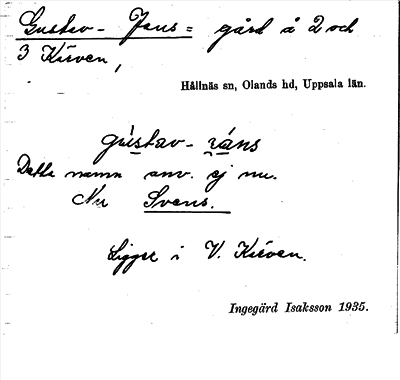 Gustav-Jans= gård å 2 och
3 Kieven,
Hållnäs sn, Olands hd, Uppsala län.
gùstav-jáns
Detta namn anv. ej nu.
Nu Svens.
Ligger i V. Kieven.
Ingegärd Isaksson 1935.